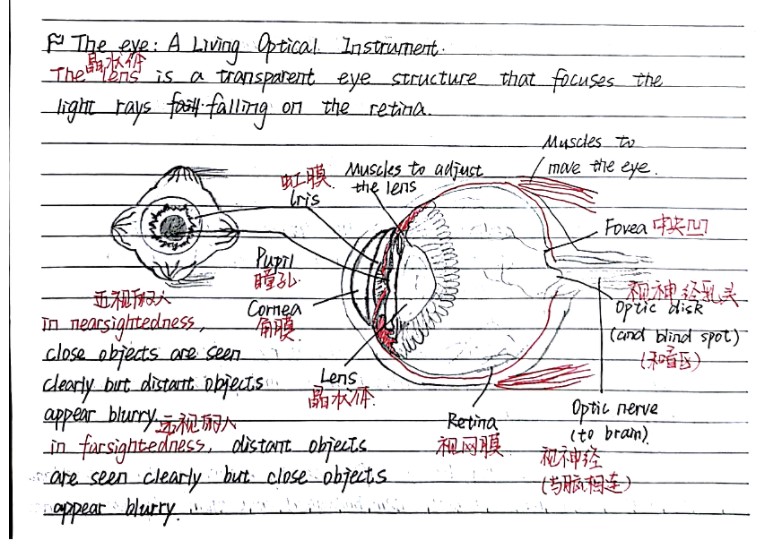 The eye: A Living Optical Instrument.
晶状体
The lens is a transparent eye structure that focuses the
light rays falling on the retina.
Muscles to
move the eye.
Muscles to adjust
the lens
虹膜
Iris
Fovea 中央凹
Pupil
瞳孔
Cornea
角膜
视神经乳头
Optic disk
(and blind spot)
(和盲区)
Lens
晶状体
Retina
视网膜
Optic nerve
(to brain)
视神经
(与脑相连)
近视的人
in nearsightedness,
close objects are seen
clearly but distant objects
appear blurry.
远视的人
in farsightedness, distant objects
are seen clearly but close objects
appear blurry.